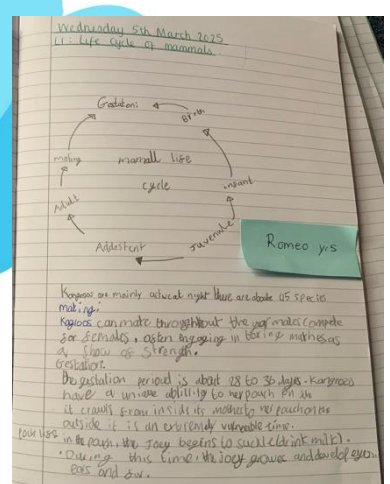 Wednesday 5th March 2025
LI: Life cycle of mammals.
Gestation:
Birth
mating
mamall life
cycle
infant
Adult
Juvenale
Addestent
Romeo yr5
Kangooos are mainly active at night there are aboute 45 species
mating.
can mate throughout the year males compete
for females, often engaging in boxing mathes as
a show of strength.
Gestation.
The gestation period is about 28 to 36 days. Kangroos
have a unique ability to
it crawls from inside its mother to her pouch
outside it is an extremly vulnerable time.
in the pouch, the Joey begins to suckle (drink milk).
During this time, the joey growes and develops eyes
ears and fur.